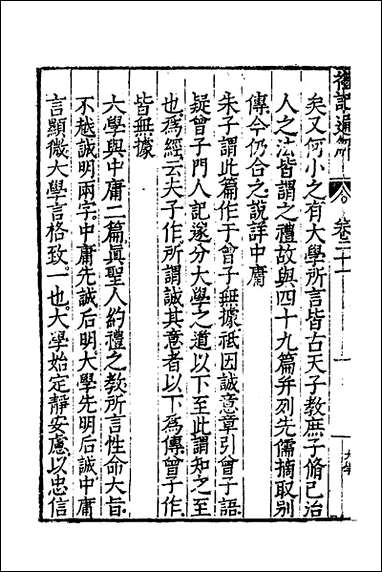 矣又何小之有大學所言皆古天子教庶子脩己治
人之法皆謂之禮故與四十九篇并列先儒摘取別
傳今仍合之說詳中庸
朱子謂此篇作于曾子無據祗因誠意章引曾子語
疑曾子門人記遂分大學之道以下至此謂知之至
也爲經云夫子作所謂誠其意者以下爲傳曾子作
皆無據
大學與中庸二篇眞聖人約禮之教所言性命大旨
不越誠明兩字中庸先誠后明大學先明后誠中庸
言顯微大學言格致一也大學始定靜安慮以忠信
禮記通解
卷二十一
一